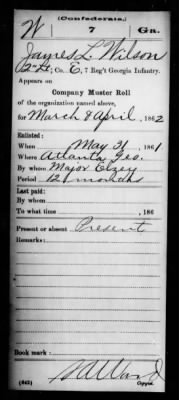 (Confederate.)
W 7 Ga.
James L. Wilson
2" Lt, Co. E, 7 Reg't Georgia Infantry.
Appears on
Company Muster Roll
of the organization named above,
for March & April, 1862
Enlisted:
When May 31, 1861
Where Atlanta, Geo.
By whom Major Elzey
Period 12 months
Last paid:
By whom
To what time , 186
Present or absent Present
Remarks:
Book mark:
(642) Copyist.